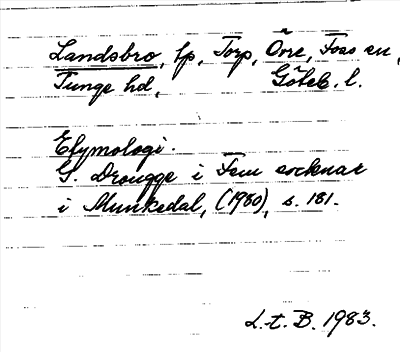 Landsbro, lp, Torp, Övre, Foss sn,
Tunge hd, Göteb. l.
Etymologi.
G. Drougge i Fem socknar
i Munkedal, (1980), s. 181.
L.t.B. 1983.